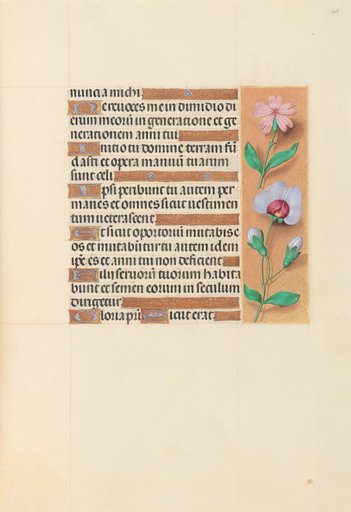 nuncia michi
Ne reuoces me in dimidio di
erum meorū in generatione et ge
nerationem anni tui
Initio tu domine terram fū
dasti et opera manuū tuarum
sunt celi
Ipsi peribunt tu autem per
manes et omnes sicut uestimen
tum ueterascent
Et sicut opertoriū mutabis e
os et mutabūtur tu autem idem
ipē es et anni tui non deficient
Filii seruorū tuorum habita
bunt et semen eorum in seculum
dirigetur
Gloria pri Sicut erat